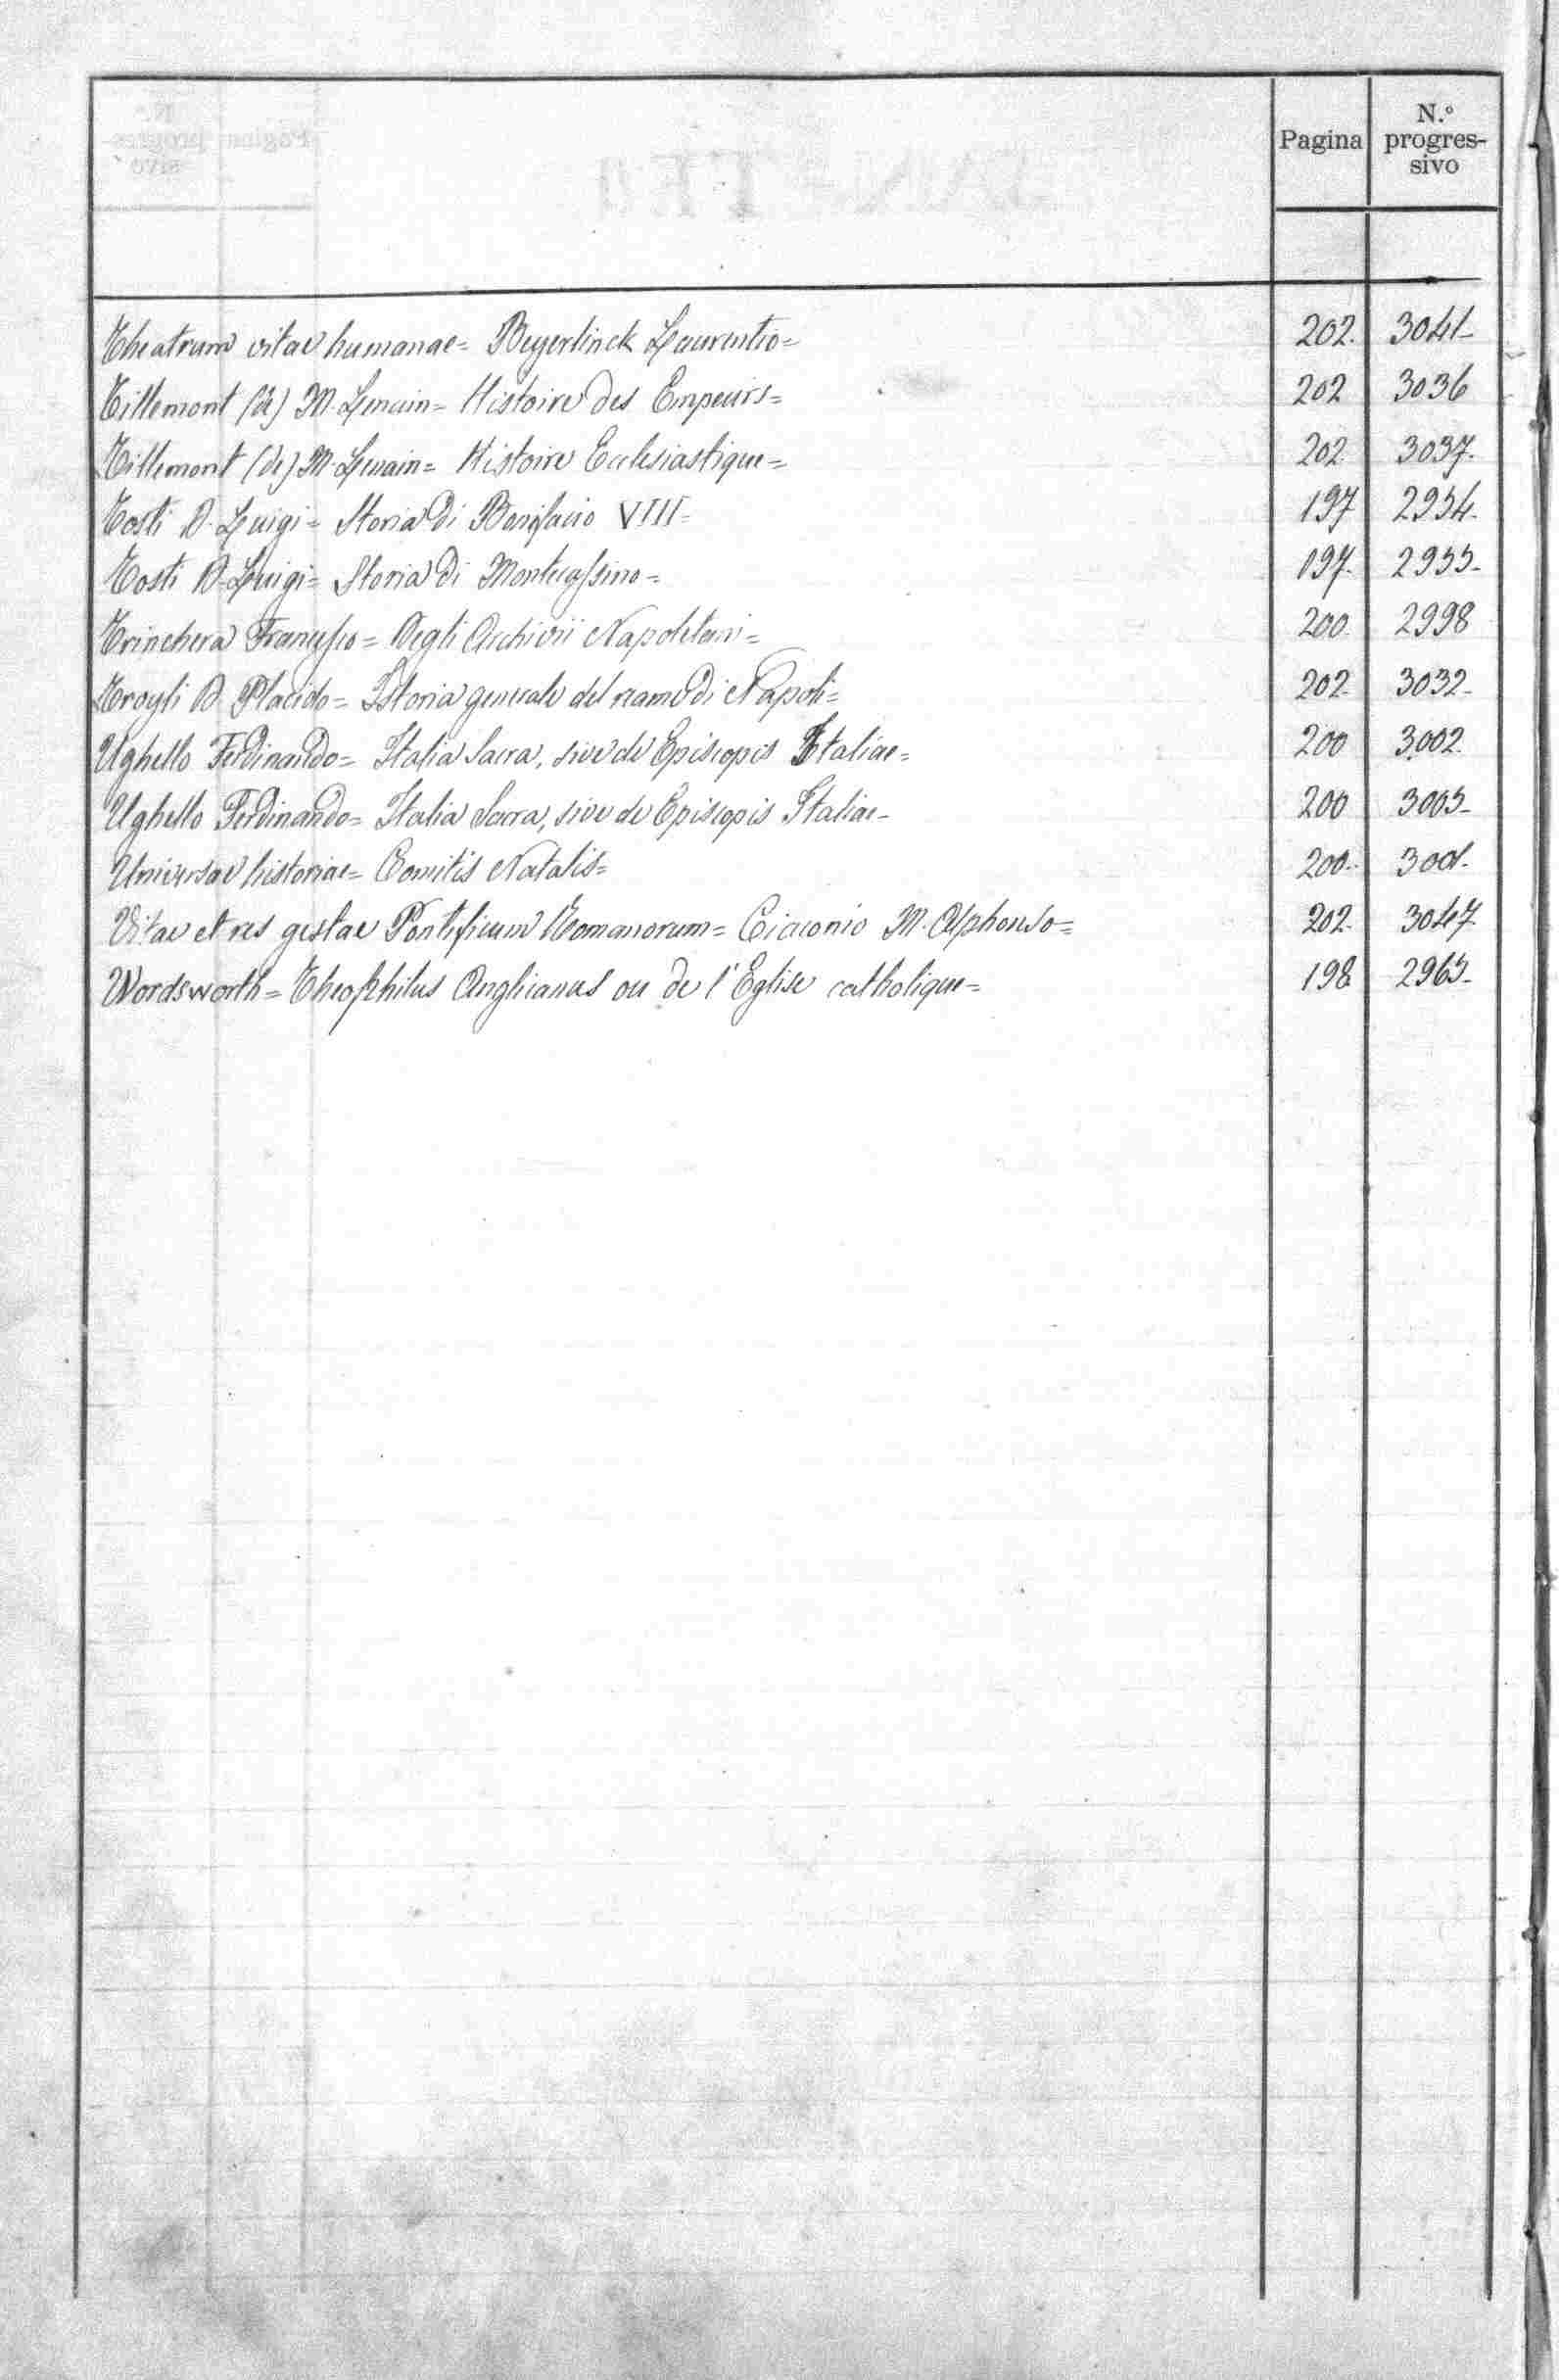 Pagina N.º progres-sivo
Theatrum vitae humanae= Beyerlinck Laurentio= 202. 3041-
Tillemont (de) M. Lenain= Histoire des Empeurs= 202 3036
Tillemont (de) M. Lenain= Histoire Ecclesiastique= 202. 3037.
Tosti D. Luigi= Storia di Bonifacio VIII= 197 2954.
Tosti D. Luigi= Storia di Montecassino= 197. 2955-
Trinchera Francesco= Degli Archivii Napoletani= 200. 2998
Troyli D. Placido= Istoria generale del reame di Napoli= 202. 3032-
Ughello Ferdinando= Italia Sacra, sive de Episcopis Italiae= 200 3002.
Ughello Ferdinando= Italia Sacra, sive de Episcopis Italiae- 200 3003-
Universae historiae= Comitis Natalis= 200.. 3001.
Vitae et res gestae Pontificum Romanorum= Ciaconio M. Alphonso= 202. 3047.
Wordsworth= Theophilus Anglicanus ou de l'Eglise catholique= 198 2965-